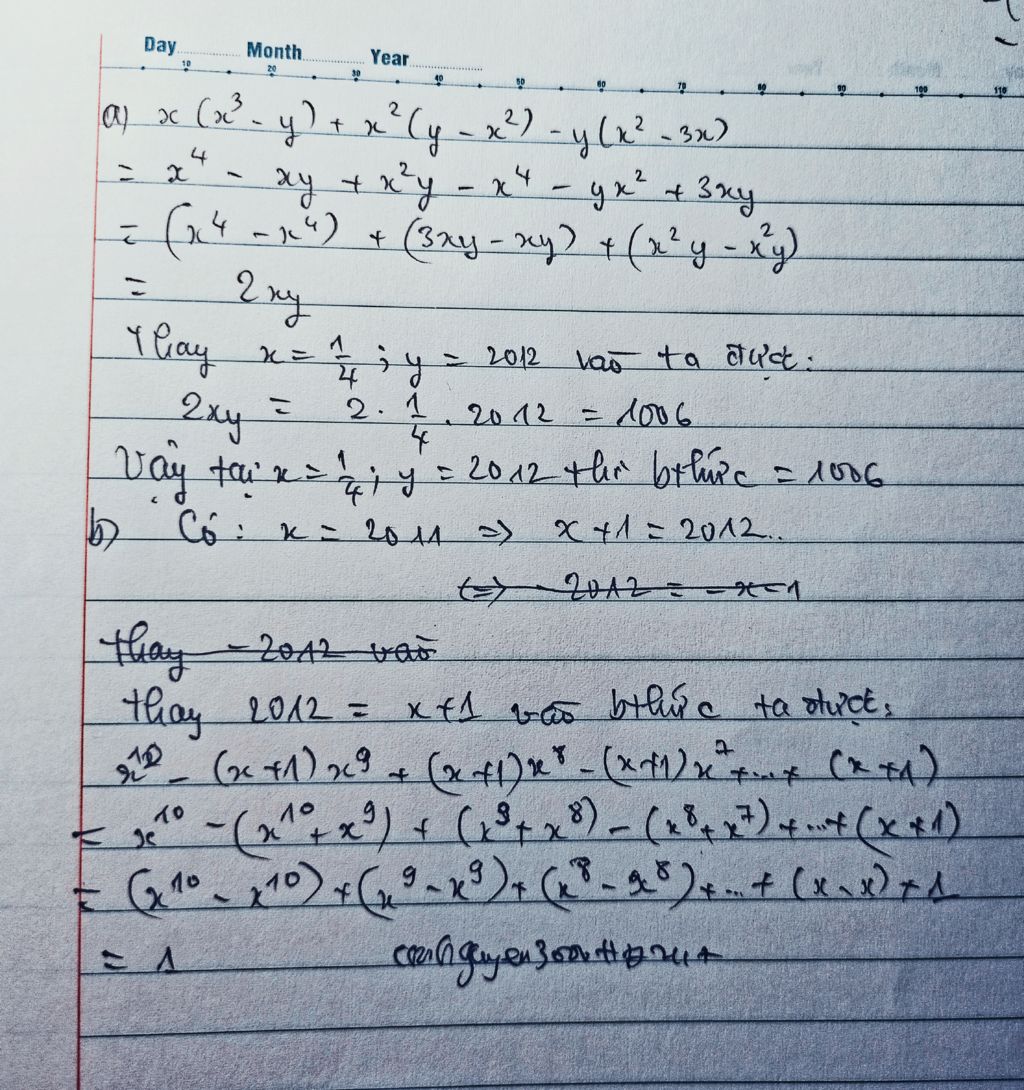 Day Month Year
10 20 30 40 50 60 70 80 90 100 110
a) x(x³ - y) + x²(y - x²) - y(x² - 3x)
= x⁴ - xy + x²y - x⁴ - yx² + 3xy
= (x⁴ - x⁴) + (3xy - xy) + (x²y - x²y)
= 2xy
Thay x = 1/4 ; y = 2012 vào ta được:
2xy = 2 . 1/4 . 2012 = 1006
Vậy tại x = 1/4 ; y = 2012 thì bthức = 1006
b) Có : x = 2011 => x + 1 = 2012..
<=> - 2012 = - x - 1
thay - 2012 vào
thay 2012 = x + 1 vào bthức ta được:
x¹⁰ - (x + 1)x⁹ + (x + 1)x⁸ - (x + 1)x⁷ + ... + (x + 1)
= x¹⁰ - (x¹⁰ + x⁹) + (x⁹ + x⁸) - (x⁸ + x⁷) + ... + (x + 1)
= (x¹⁰ - x¹⁰) + (x⁹ - x⁹) + (x⁸ - x⁸) + ... + (x - x) + 1
= 1